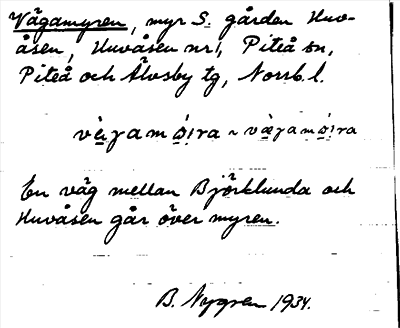 Vägamyren, myr S. gården Huv-
åsen, Huvåsen nr 1, Piteå sn,
Piteå och Älvsby tg, Norrb. l.
vàgamø̣̀ra ~ væ̀gamø̣̀ra
En väg mellan Björklunda och
Huvåsen går över myren.
B. Nygren 1934.